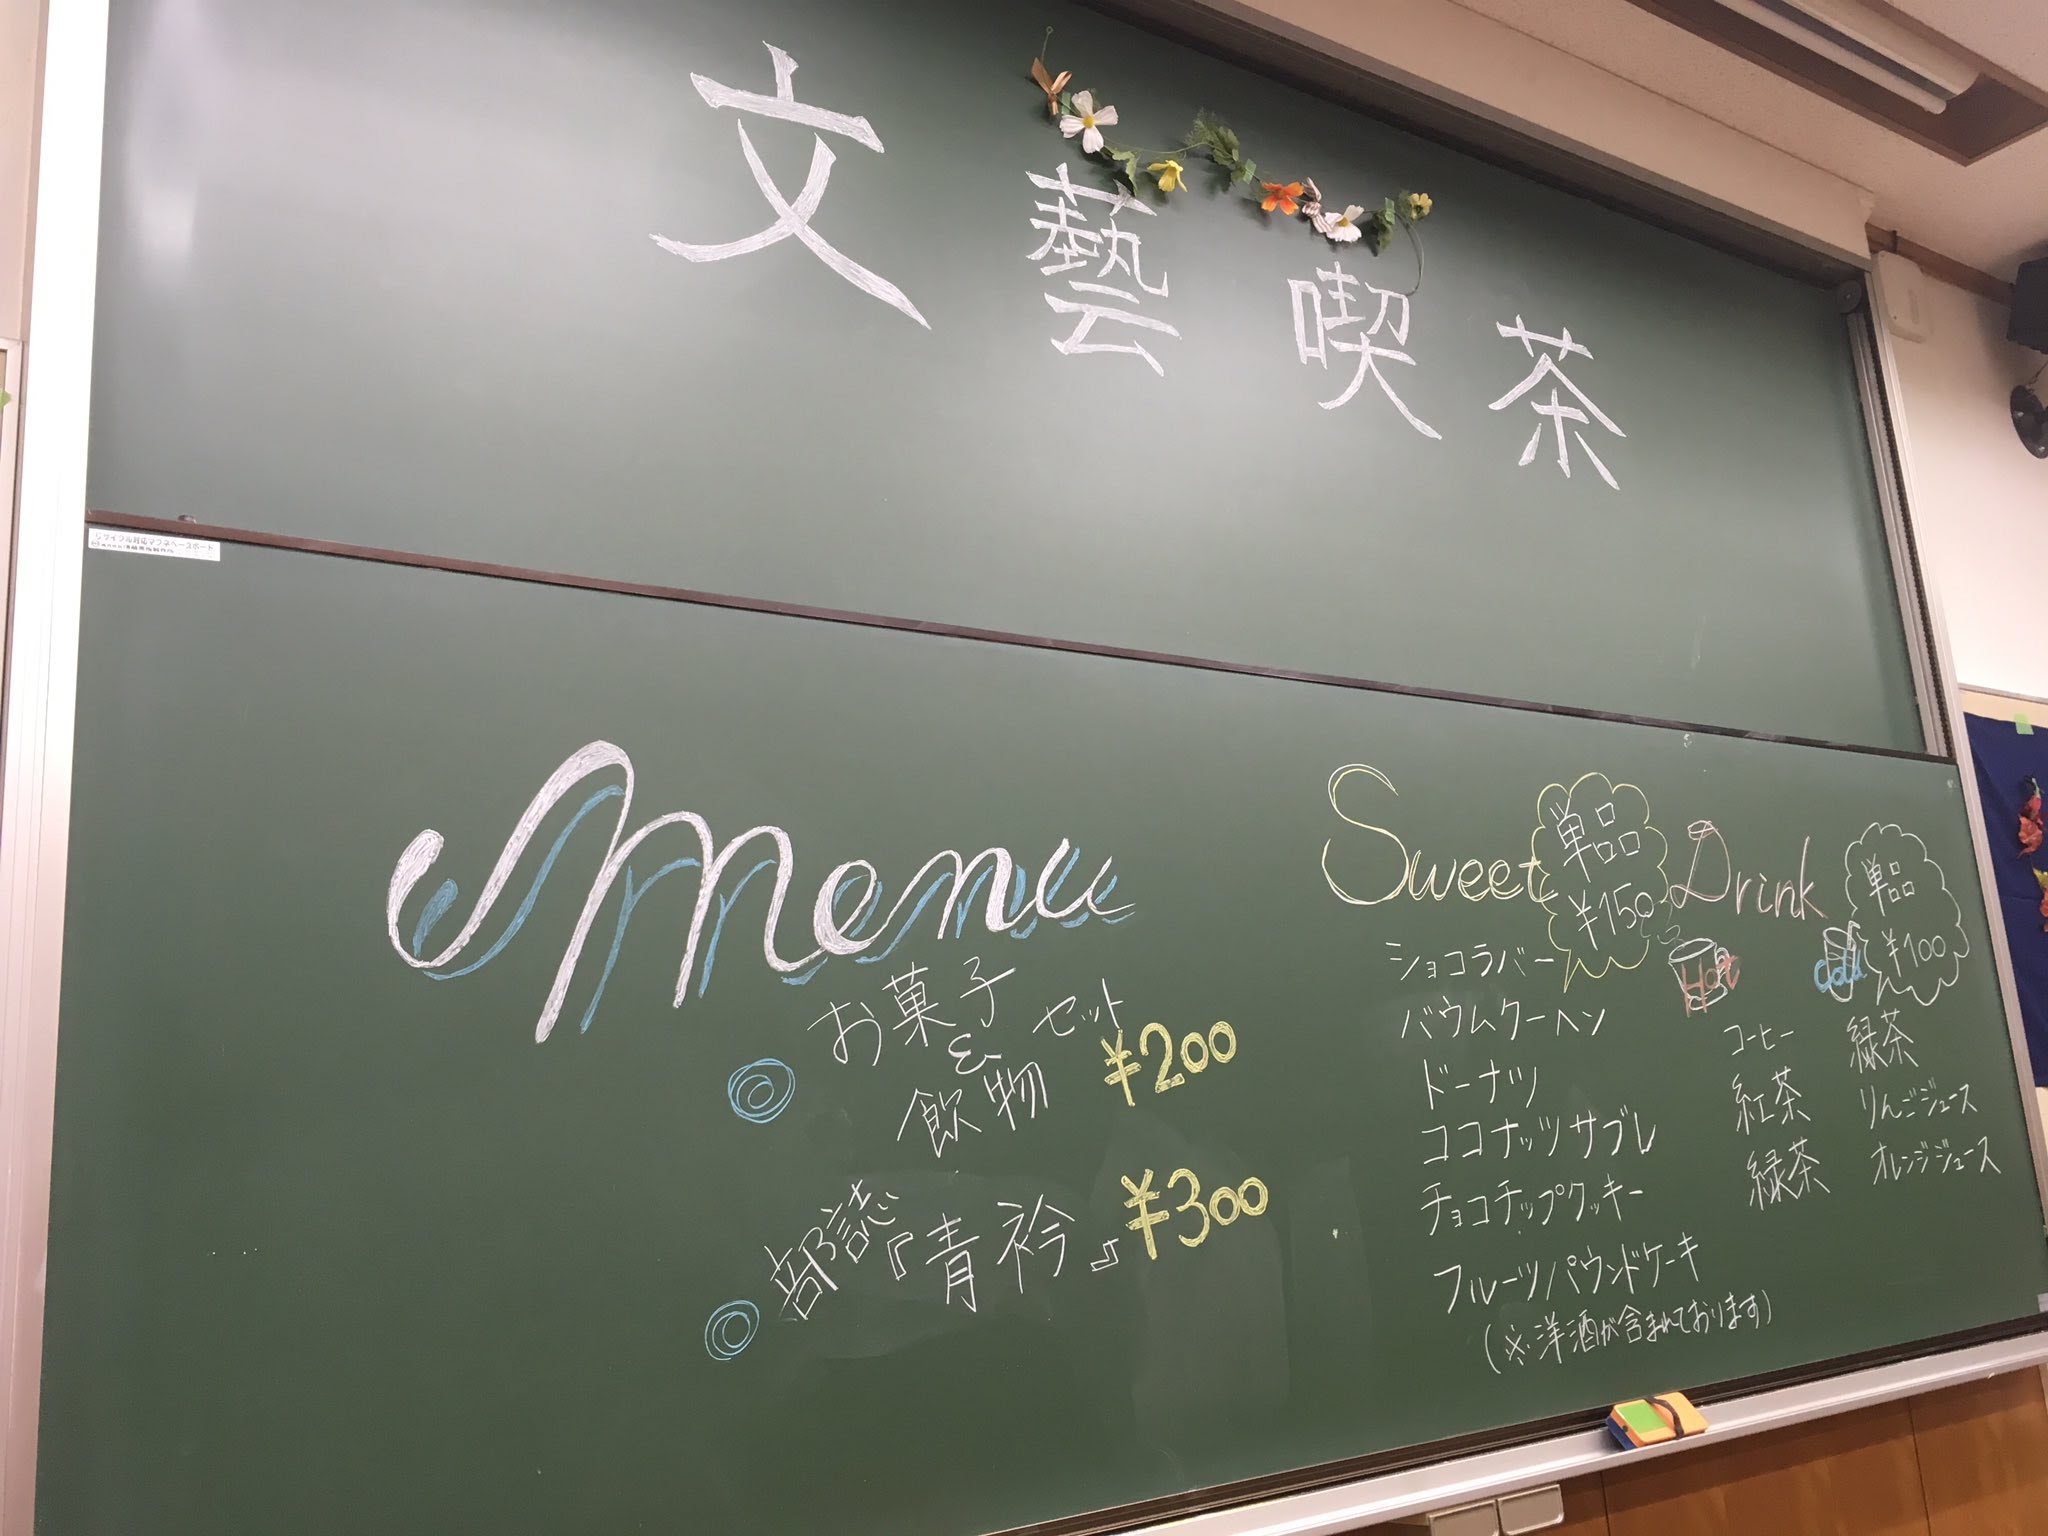 文藝喫茶
リサイクル対応マグネペースボート
Menu
お菓子
&
飲物
セット
¥200
部誌『青衿』
¥300
Sweet
単品
¥150
ショコラバー
バウムクーヘン
ドーナツ
ココナッツサブレ
チョコチップクッキー
フルーツパウンドケーキ
(※洋酒が含まれております)
Drink
単品
¥100
Hot
コーヒー
紅茶
緑茶
Cold
緑茶
りんごジュース
オレンジジュース